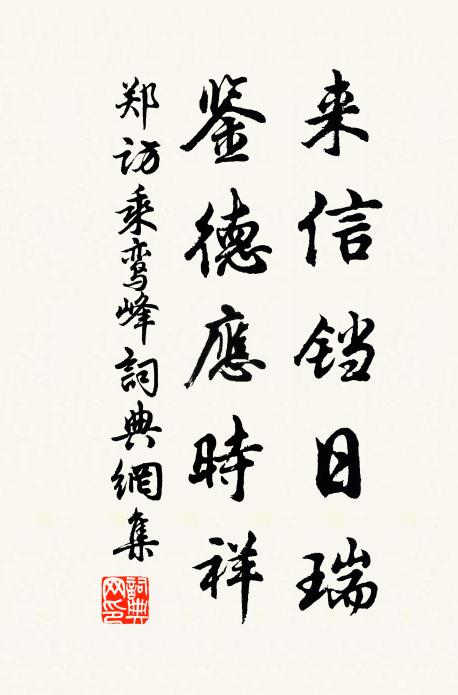 来信铛日瑞
鉴德應時祥
郑访乘鸾峰詞典網集
詞典网印